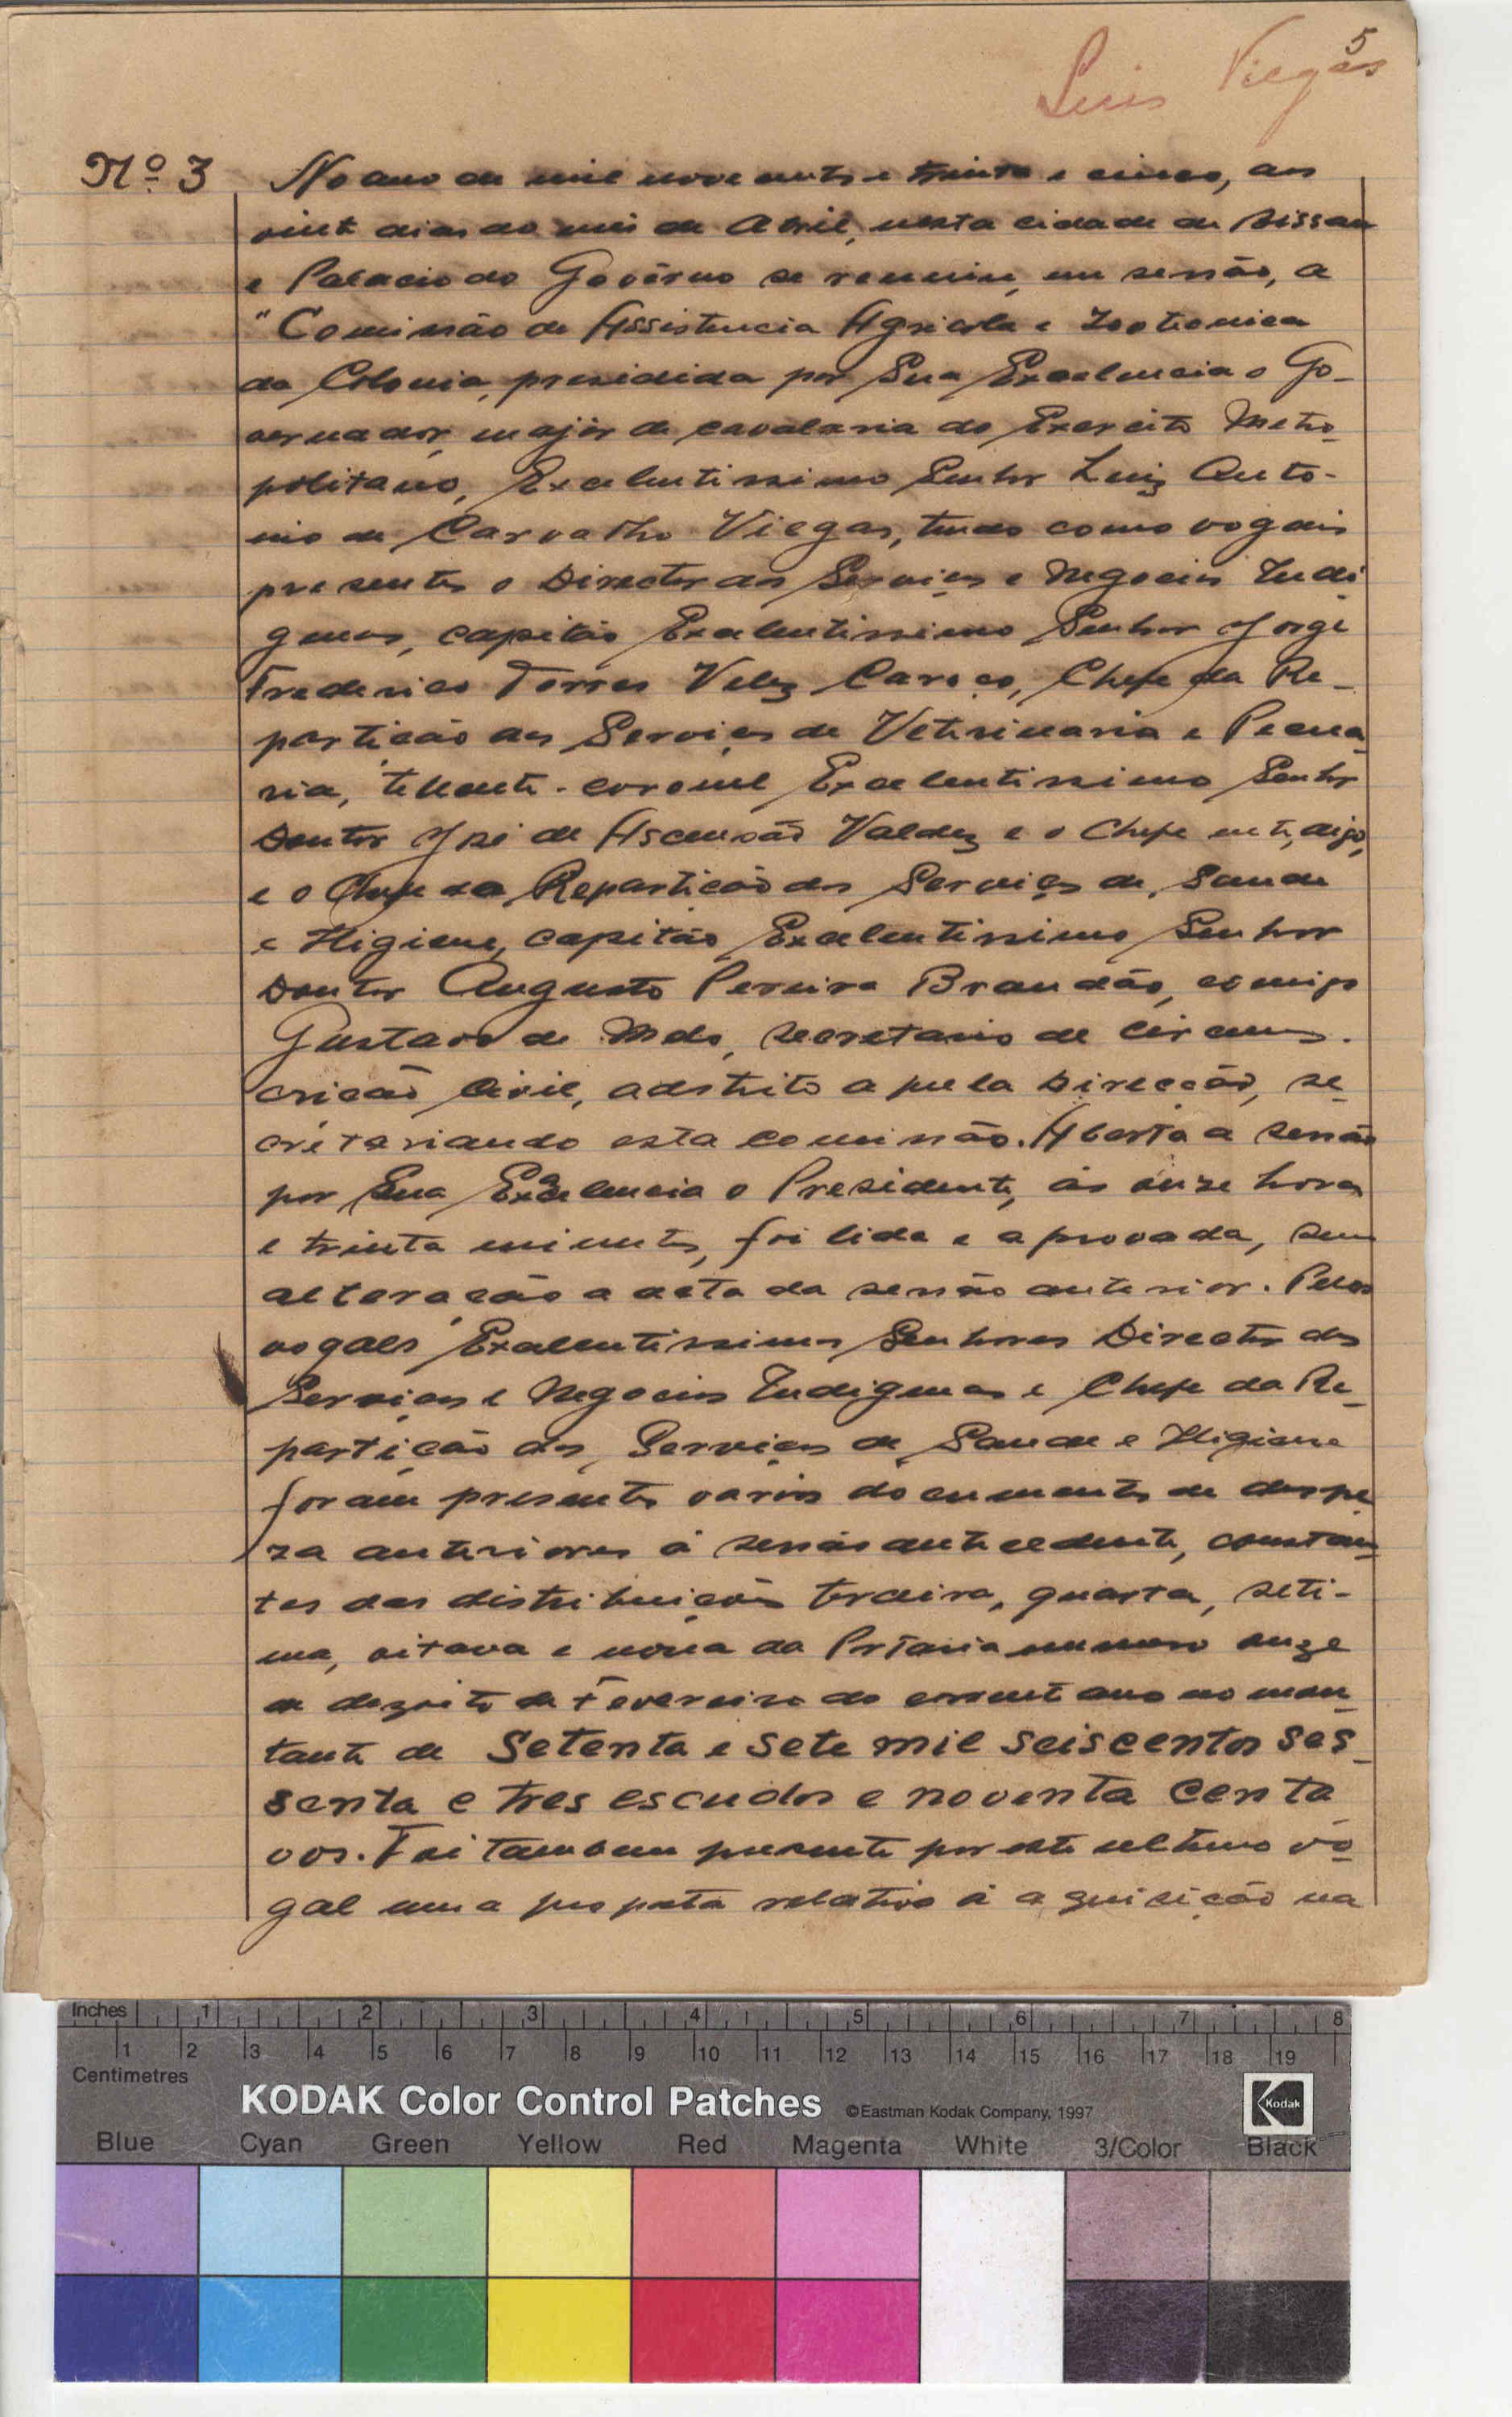 5
Luis Viegas
Nº 3 No ano de mil novecentos e trinta e cinco, aos
vinte dias do mês de Abril, nesta cidade de Bissau
e Palacio do Govêrno se reuniu, em sessão, a
"Comissão de Assistencia Agricola e Zootecnica
da Colonia, presidida por Sua Excelencia o Go-
vernador, major de cavalaria do Exercito Metro-
politano, Excelentissimo Senhor Luiz Antó-
nio de Carvalho Viegas, tendo como vogais
presentes o Director dos Serviços e Negocios Indi-
genas, capitão Excelentissimo Senhor Jorge
Frederico Torres Velez Caroço, Chefe da Re-
partição dos Serviços de Veterinaria e Pecua-
ria, tenente-coronel Excelentissimo Senhor
Doutor José de Ascensão Valdez e o Chefe digo,
e o Chefe da Repartição dos Serviços de Saude
e Higiene, capitão Excelentissimo Senhor
Doutor Augusto Pereira Brandão, comigo
Gustavo de Melo, secretario de circuns-
crição civil, adstrito aquela Direcção, se-
cretariando esta comissão. Aberta a sessão
por Sua Excelencia o Presidente, ás onze horas
e trinta minutos, foi lida e aprovada, sem
alteração a acta da sessão anterior. Pelos
vogaes Excelentissimos Senhores Director dos
Serviços e Negocios Indigenas e Chefe da Re-
partição dos Serviços de Saude e Higiene
foram presentes varios documentos de despe-
za anteriores á sessão antecedente, constan-
tes das distribuições terceira, quarta, seti-
ma, oitava e nona da Portaria numero onze
de dezoito de Fevereiro do corrente ano no mon-
tante de Setenta e sete mil seiscentos ses-
senta e tres escudos e noventa centa-
vos. Foi tambem presente por este ultimo vo-
gal uma proposta relativa á aquisição na
Inches 1 2 3 4 5 6 7 8
1 2 3 4 5 6 7 8 9 10 11 12 13 14 15 16 17 18 19
Centimetres
KODAK Color Control Patches ©Eastman Kodak Company, 1997 Kodak
Blue Cyan Green Yellow Red Magenta White 3/Color Black